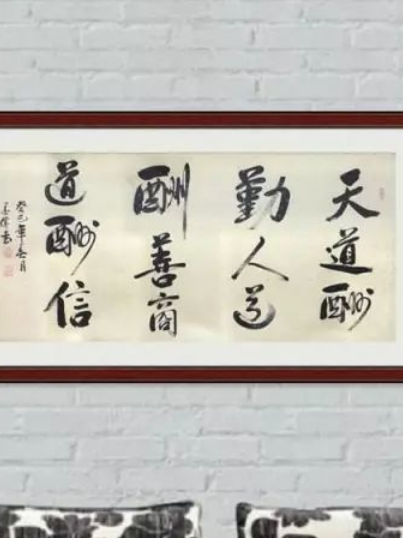 天道酬
勤人道
酬善商
道酬信
癸巳年冬月